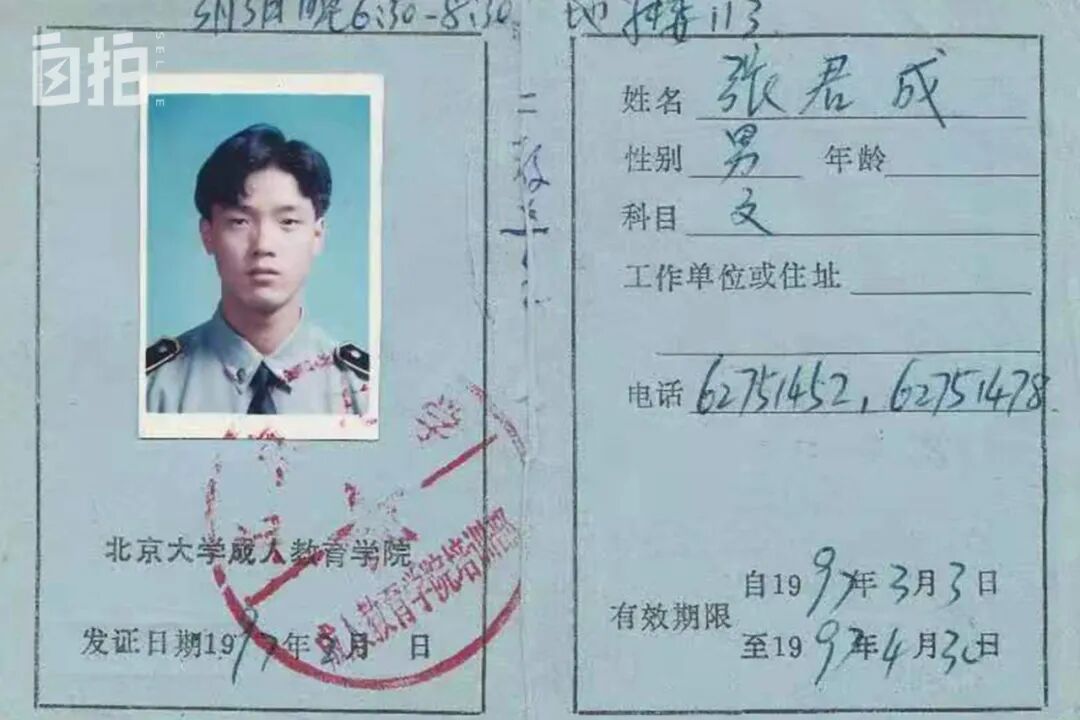 3月3日晚6:30-8:30 地
自拍
SELFIE
北京大学成人教育学院
成人教育学院培训部
发证日期1997年2月 日
姓名 张君成
性别 男 年龄
科目 文
工作单位或住址
电话 62751452,62751478
有效期限
自1997年3月3日
至1997年4月30日